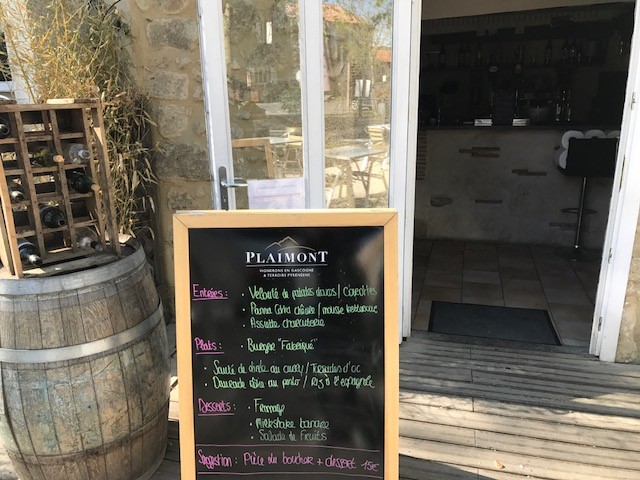 PLAIMONT
VIGNERONS EN GASCOGNE
& TERROIRS PYRÉNÉENS
Entrées : • Velouté de patates douces / Carottes
• Panna Cotta chèvre / mousse betterave
• Assiette charcuterie
Plats : • Burger "Fabrique"
• Sauté de dinde au curry / Torsades d'oc
• Daurade rôtie au pesto / Riz à l'espagnole
Desserts : • Fromage
• Milkshake banane
• Salade de fruits
Suggestion : Pièce du boucher + dessert 15€